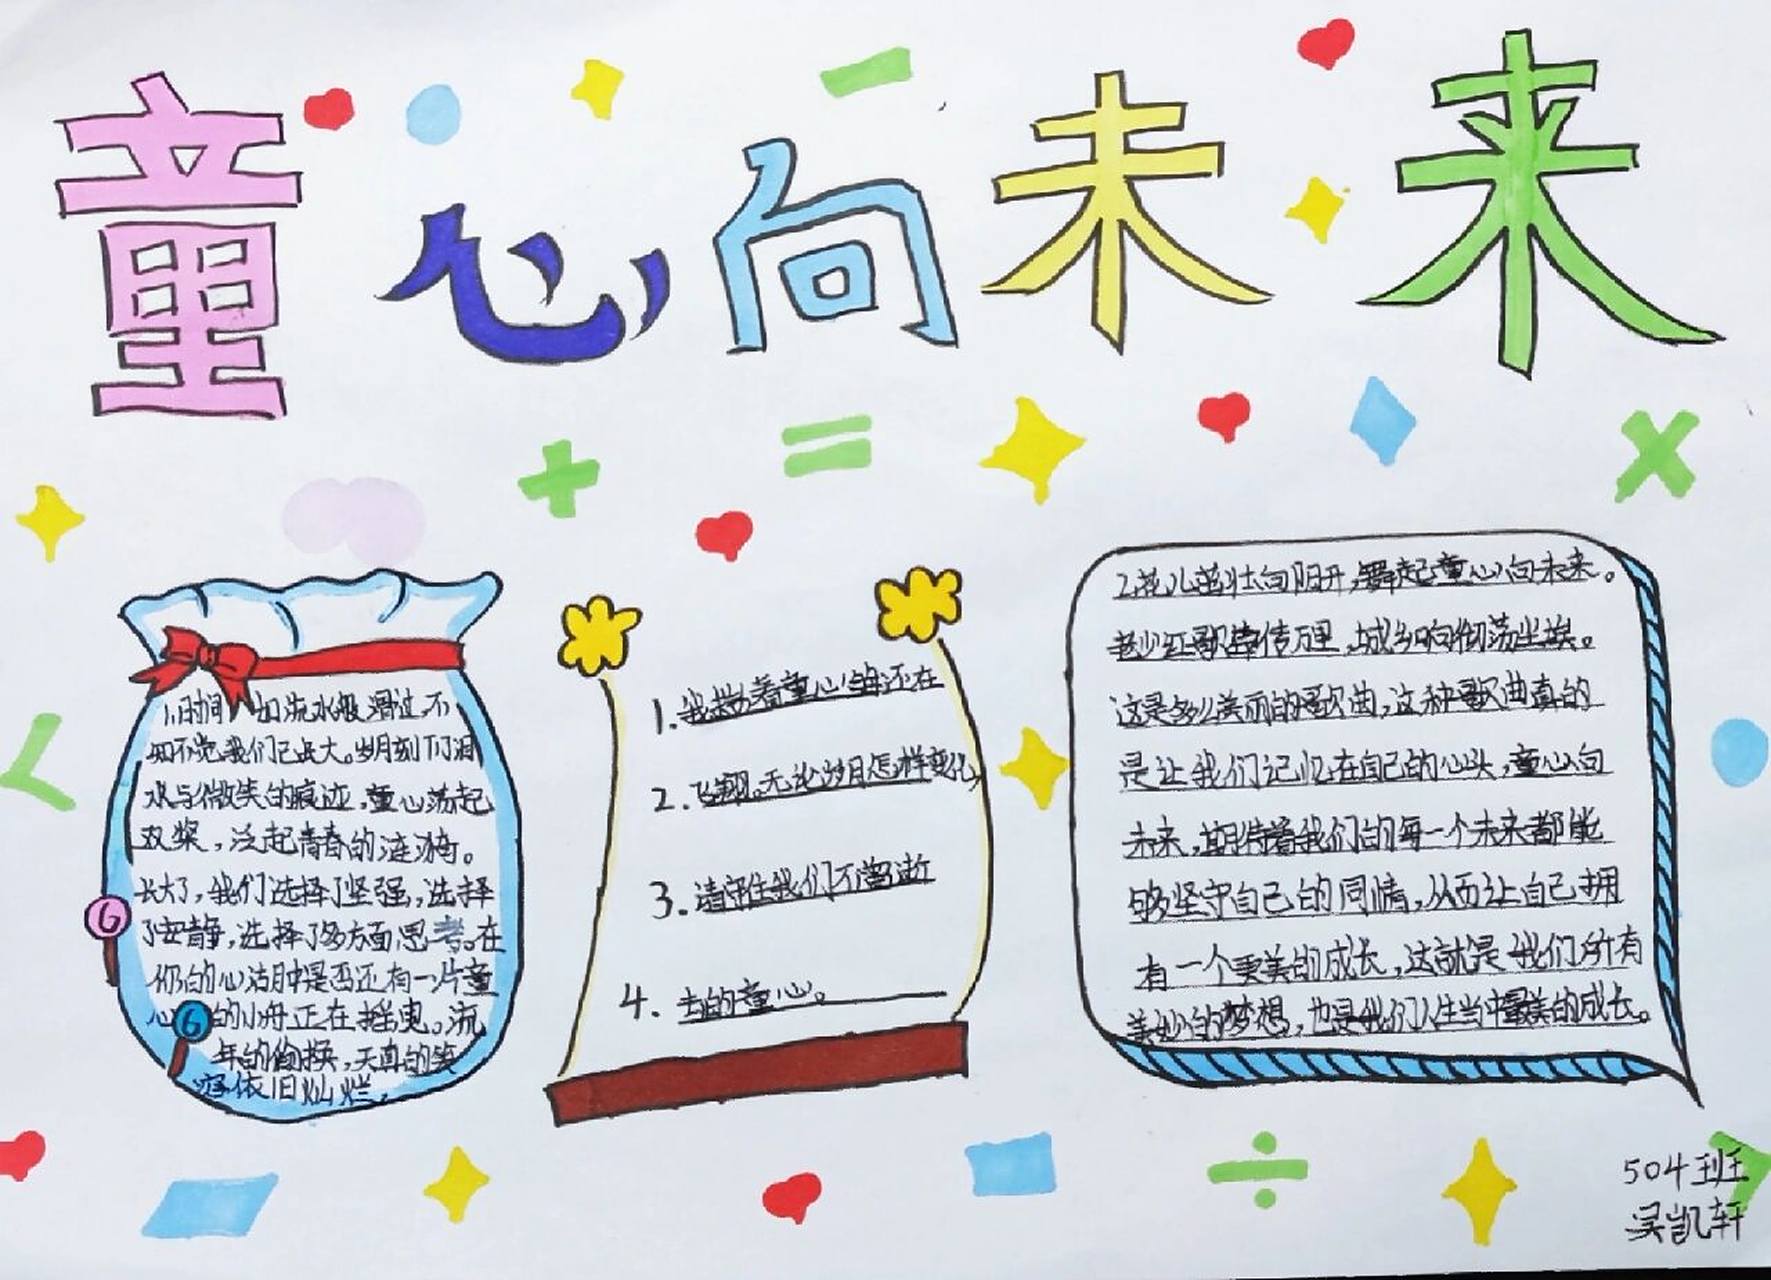 童心向未来
1.时间如流水般滑过,不
知不觉我们已长大。岁月刻下们泪
水与微笑的痕迹,童心荡起
双桨,泛起青春的涟漪。
长大了,我们选择了坚强,选择
了安静,选择了多方面思考。在
你的心湖中是否还有一片童
心 G 的小舟正在摇曳。流
年的偷换,天真的笑
容依旧灿烂。
G
1.我拨着童心 还在
2.飞翔。无论岁月怎样变化,
3.请守住我们不曾逝
4.去的童心。
2.花儿茁壮向阳开,舞起童心向未来。
老少红歌 传万里,城乡响彻荡尘埃。
这是多么美丽的歌曲,这种歌曲真的
是让我们记忆在自己的心头,童心向
未来,期待着我们的每一个未来都能
够坚守自己的同情,从而让自己拥
有一个更美的成长,这就是我们所有
美妙的梦想,也是我们人生当中最美的成长。
504班
吴凯轩